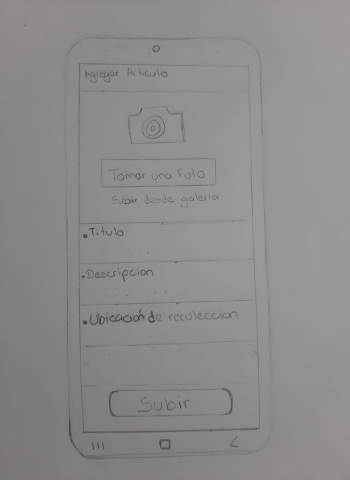 Agregar Articulo
Tomar una foto
Subir desde galeria
• Titulo
• Descripcion
• Ubicación de recoleccion
Subir